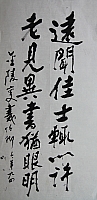 遠聞佳士輒心許
老見異書猶眼明